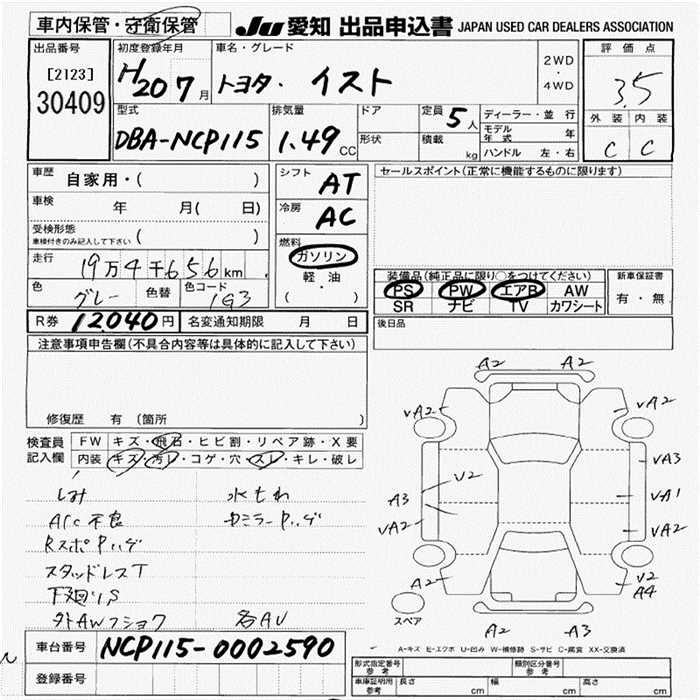 車内保管・守衛保管 JU 愛知 出品申込書 JAPAN USED CAR DEALERS ASSOCIATION
出品番号 初度登録年月 車名・グレード 2WD ・ 4WD 評価点
[2123] H20 7月 トヨタ. イスト 3.5
30409 型式 排気量 ドア 定員 5人 ディーラー・並行 外装 内装
DBA-NCP115 1.49 CC 形状 積載 kg モデル年式 年 C C
ハンドル 左・右
車歴 自家用・( ) シフト AT セールスポイント(正常に機能するものに限ります)
車検 年 月( 日) 冷房 AC
受検形態
車検付きのみ記入して下さい ( ) 燃料
走行 19万4千656km ガソリン 装備品(純正品に限り○をつけてください) 新車保証書
色 グレー 色替 色コード 1G3 軽・油 PS PW エアB AW 有・無
( ・ ) SR ナビ TV カワシート
R券 12,040円 名変通知期限 月 日 後日品
注意事項申告欄(不具合内容等は具体的に記入して下さい)
修復歴 有 (箇所 )
検査員 FW キズ・飛石・ヒビ割・リペア跡・X要
記入欄 内装 キズ・汚レ・コゲ・穴・スレ・キレ・破レ
しみ
A/c不良
スタッドレスT
下廻りS
各AU
A2 A2
VA2 VA2
VA3
V2
A3 VA1
VA2 VA2
A2 V2
A4
スペア
A2 A3
A-キズ E-エクボ U-凹み W-補修跡 S-サビ C-腐食 XX-交換済
車台番号 NCP115-0002590
登録番号
形式指定番号 参考 類別区分番号 参考
車庫証明用 参考 長さ cm 幅 cm 高さ cm